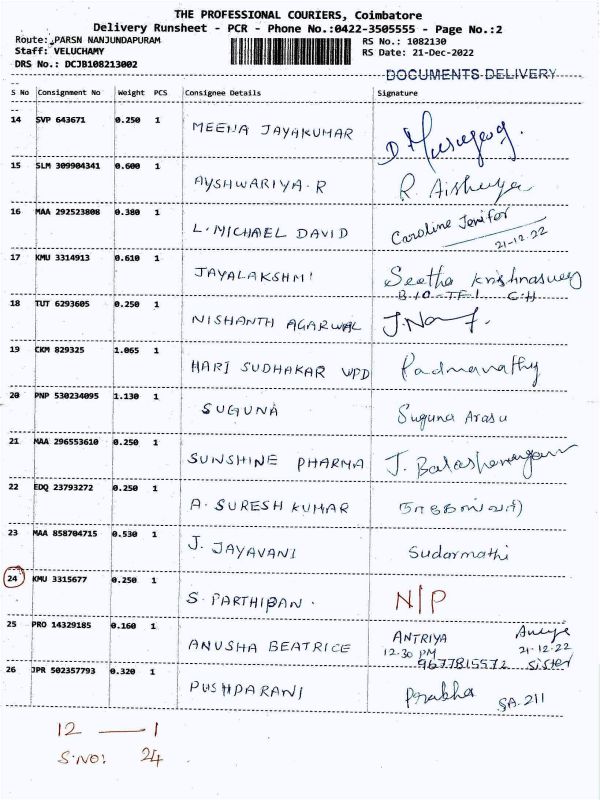 THE PROFESSIONAL COURIERS, Coimbatore
Delivery Runsheet - PCR - Phone No.:0422-3505555 - Page No.:2
Route: PARSN NANJUNDAPURAM RS No.: 1082130
Staff: VELUCHAMY RS Date: 21-Dec-2022
DRS No.: DCJB108213002
DOCUMENTS DELIVERY
S No Consignment No Weight PCS Consignee Details Signature
14 SVP 643671 0.250 1 MEENA JAYAKUMAR
15 SLM 309904341 0.600 1 AYSHWARIYA.R R. Aishwrya
16 MAA 292523808 0.380 1 L. MICHAEL DAVID Caroline Jenifer
21-12-22
17 KMU 3314913 0.610 1 JAYALAKSHMI Seetha Krishnaswey
18 TUT 6293605 0.250 1 NISHANTH AGARWAL
19 CKM 829325 1.065 1 HARI SUDHAKAR UPD Padmanathy
20 PNP 530234095 1.130 1 SUGUNA Suguna Arasu
21 MAA 296553610 0.250 1 SUNSHINE PHARMA
22 EDQ 23793272 0.250 1 A. SURESH KUMAR
23 MAA 858704715 0.530 1 J. JAYAVANI Sudarmathi
24 KMU 3315677 0.250 1 S. PARTHIBAN. N/P
25 PRO 14329185 0.160 1 ANUSHA BEATRICE ANTRIYA
12.30 PM 21-12-22
9677815572 Sister
26 JPR 502357793 0.320 1 PUSHPARANI Prabha SA.211
12 — 1
S.NO: 24